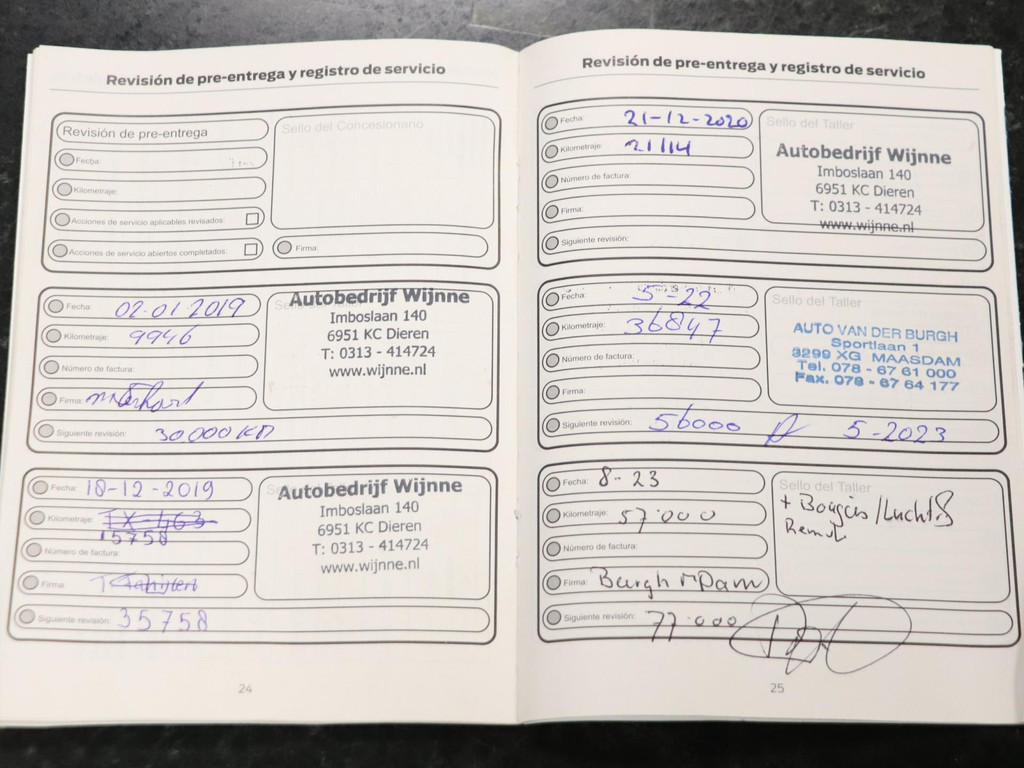 Revisión de pre-entrega y registro de servicio
Revisión de pre-entrega
Fecha:
Kilometraje:
Acciones de servicio aplicables revisados:
Acciones de servicio abiertos completados:
Sello del Concesionario
Firma:
Fecha: 02-01 2019
Kilometraje: 9946
Número de factura:
Firma:
Siguiente revisión: 30000 KM
Autobedrijf Wijnne
Imboslaan 140
6951 KC Dieren
T: 0313 - 414724
www.wijnne.nl
Fecha: 18-12-2019
Kilometraje:
15758
Número de factura:
Firma:
Siguiente revisión: 35758
Autobedrijf Wijnne
Imboslaan 140
6951 KC Dieren
T: 0313 - 414724
www.wijnne.nl
24
Revisión de pre-entrega y registro de servicio
Fecha: 21-12-2020
Kilometraje: 21114
Número de factura:
Firma:
Siguiente revisión:
Sello del Taller
Autobedrijf Wijnne
Imboslaan 140
6951 KC Dieren
T: 0313 - 414724
www.wijnne.nl
Fecha: 5-22
Kilometraje: 36847
Número de factura:
Firma:
Siguiente revisión: 56000 5-2023
Sello del Taller
AUTO VAN DER BURGH
Sportlaan 1
3299 XG MAASDAM
Tel. 078 - 67 61 000
Fax. 078 - 67 64 177
Fecha: 8-23
Kilometraje: 57.000
Número de factura:
Firma: Burgh
Siguiente revisión: 77.000
Sello del Taller
+ Bougies
25